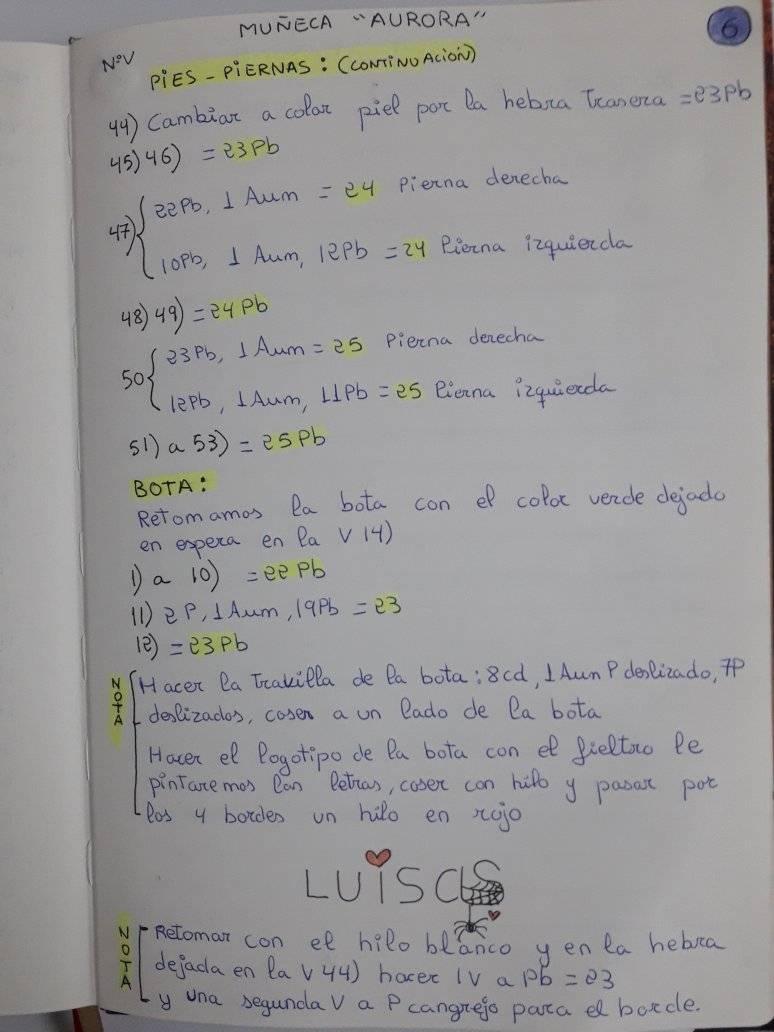 MUÑECA "AURORA"
6
NºV
PiES - PiERNAS: (CONTiNUACiÓN)
44) Cambiar a color piel por la hebra Trasera = 23Pb
45) 46) = 23Pb
47) 22Pb, 1 Aum = 24 Pierna derecha
10Pb, 1 Aum, 12Pb = 24 Pierna izquierda
48) 49) = 24Pb
50 23Pb, 1 Aum = 25 Pierna derecha
12Pb, 1 Aum, 11Pb = 25 Pierna izquierda
51) a 53) = 25Pb
BOTA:
Retomamos la bota con el color verde dejado
en espera en la V 14)
1) a 10) = 22Pb
11) 2P, 1 Aum, 19Pb = 23
12) = 23Pb
NOTA
Hacer la Trabilla de la bota: 8cd, 1 Aun P deslizado, 7P
deslizados, coser a un lado de la bota
Hacer el logotipo de la bota con el fieltro le
pintaremos las letras, coser con hilo y pasar por
los 4 bordes un hilo en rojo
LUiSCUS
NOTA
Retomar con el hilo blanco y en la hebra
dejada en la V 44) hacer 1V a Pb = 23
y una segunda V a P cangrejo para el borde.